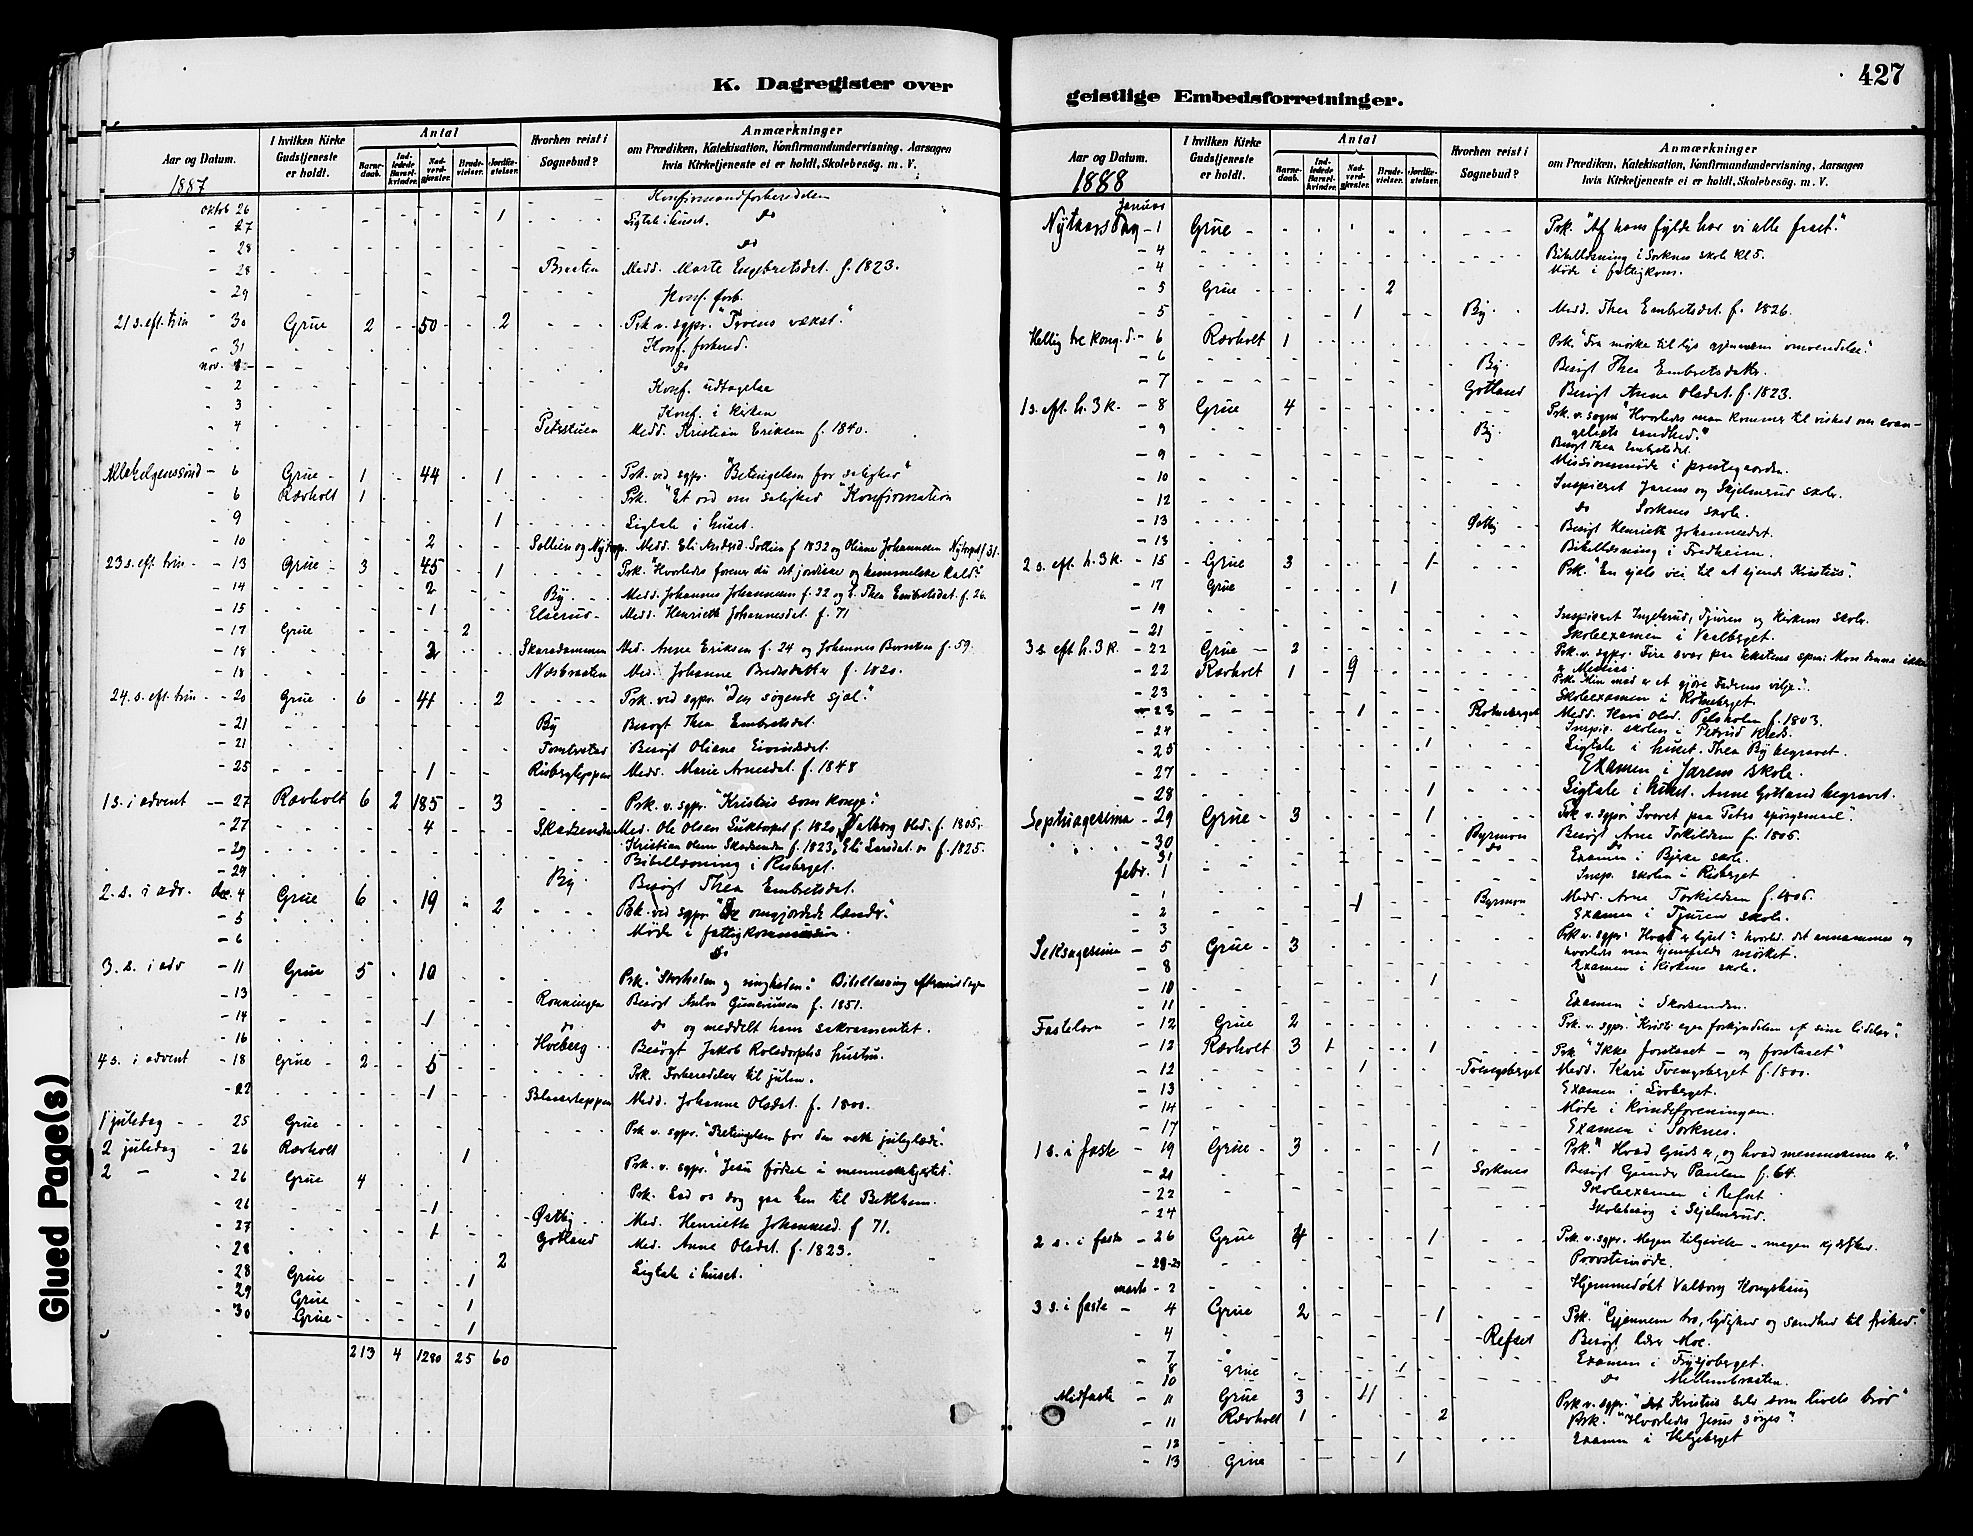 K. Dagregister over
Aar og Datum.
1887
I hvilken Kirke Gudstjeneste er holdt.
Antal
Barnedaab.
Indledede Barselkvinder.
Nadverdgjæster.
Brudevielser.
Jordfæstelser.
Hvorhen reist i Sognebud?
Anmærkninger
om Prædiken, Katekisation, Konfirmandundervisning, Aarsagen
hvis Kirketjeneste ei er holdt, Skolebesøg. m. V.
oktob 26 Konfirmandforberedelse
- 27 1 Ligtale i huset. do
- 28 do
- 28 Braaten Medd. Marte Engebretsdat. f. 1823.
- 29 Konf. forb.
21 s. eft. trin - 30 Grue 2 50 2 Prk v. sgpr.
- 31 Konf. forbered.
nov. do
- 2 Konf. udtagelse
- 3 Konf. i kirken
- 4 Petersstuen Medd. Kristian Eriksen f. 1840.
Allehelgenssønd - 6 Grue 1 44 1 Prk. ved sgpr. "Betingelsen for salighed"
- 6 Rævholt 1 Prk. "Et ord om salighed" Konfirmation
- 9 1 Ligtale i huset.
- 10 2 Sollien og Medd. Eli Sollien f 1832 og Oliane Johannesen
23 s. eft. trin - 13 Grue 3 45 1 Prk. "Hvorledes forener du det jordiske og himmelske kald?"
- 14 2 By Medd. Johannes Johannesen f. 32 og Thea Embretsdat. f. 26
- 15 1 Elserud Medd. Henriette Johannesdat. f. 71
- 17 Grue 2
- 18 2 Skaredammen Med. Anne Eriksen f. 24 og Johannes f. 59.
- 18 Næsbraaten Med. Johanne f. 1820.
24. s. eft. trin - 20 Grue 6 41 2 Prk. ved sgpr. "Den søgende sjæl."
- 21 By Besøgt Thea Embretsdat.
- 21 Besøgt Oliane Eivindsdat.
- 25 1 Risbergleppen Medd. Marie Arnesdat. f. 1848
1 s. i advent - 27 Rævholt 6 2 185 3 Prk. v. sgpr. "Kristus som konge".
- 27 4 Medd. Ole Olsen f. 1820, Valborg Olsd. f. 1805.
- 29 Kristian Olsen f. 1823, Eli Larsdat. f. 1825.
- 29 Bibellæsning i Risberget.
By Besøgt Thea Embretsdat.
2. s. i adv. dec. 4 Grue 6 19 2 Prk. ved sgpr. "De omgjordede lænder."
- 5 Møde i fattigkommission.
- 6 do
3. s. i adv - 11 Grue 5 10 Prk. Bibellæsning eftermiddagen
- 13 Rønningen Besøgt Anton Guneriussen f. 1851.
- 14 1 do do og meddelt ham sakramentet.
- 16 Hveberg Besøgt Jakob Rolsdorphs hustru.
4 s. i advent - 18 Grue 2 5 Prk. Forberedelse til julen.
- 22 1 Medd. Johanne Olsdat. f. 1800.
1 juledag 25 Grue Prk. v. sgpr. "Betingelsen for den rette juleglæde".
2 juledag - 26 Rævholt 1 Prk. v. sgpr. "Jesu fødsel i menneskehjertet".
2 - - 26 Grue 4 Prk. Lad os dog gaa hen til Bethlehem.
- 26 1 Østby Med. Henriette Johannesd. f 71.
- 27 1 Gotland Med. Anne Olsdat. f. 1823.
- 28 2 Ligtale i huset.
- 28 Grue 1
- 29 Grue 1
- 30 Grue 1
213 4 1290 25 60
Glued Page(s)
geistlige Embedsforretninger.
427
Aar og Datum.
1888
I hvilken Kirke Gudstjeneste er holdt.
Antal
Barnedaab.
Indledede Barselkvinder.
Nadverdgjæster.
Brudevielser.
Jordfæstelser.
Hvorhen reist i Sognebud?
Anmærkninger
om Prædiken, Katekisation, Konfirmandundervisning, Aarsagen
hvis Kirketjeneste ei er holdt, Skolebesøg. m. V.
Januar
Nytaarsdag - 1 Grue Prk. "Af hans fylde har vi alle faaet."
- 4 Bibellæsning i Sorknes skole kl 5.
- 4 Møde i fattigkom.
- 5 Grue 2
- 5 1 By Medd. Thea Embretsdat. f. 1826.
Hellig tre kong. d. - 6 Rævholt 1 Prk. "Fra mørke til lys gjennem omvendelse."
- 6 By Besøgt Thea Embretsdatter.
- 7 Gotland Besøgt Anne Olsdat. f. 1823.
1 s. eft. h. 3 k. - 8 Grue 4 Prk. v. sogpr. "Hvorledes man kommer til vished om evan-
- 9 By geliets sandhed."
Besøgt Thea Embretsdat.
- 9 Missionsmøde i prestegaarden.
- 10 Inspiceret Jarens og Skjelmrud skole.
- 12 do Sorknes skole.
- 13 Østby Besøgt Henriette Johannesdat.
- 13 Bibellæsning i Fredheim.
2 s. eft. h. 3 k. - 15 Grue 3 1 Prk. "En sjæls vei til at tjende Kristus".
- 17 Grue 1
- 19 Inspiceret Ingelsrud, Tjuren og Kirkens skole.
- 21 Skoleexamen i Vaalberget.
3 s. eft h. 3 k. - 22 Grue 2 Prk. v. sgpr. Fire svar paa tekstens spm: Mon denne ikke
er Messias.
- 22 Rævholt 1 9 Prk. "Min mad er at gjøre Faderens vilje".
- 23 Skoleexamen i Rotneberget
- 23 1 Rotneberget Medd. Kari Olsd. Pelsholen f. 1803.
- 24 Inspic. skolen i Petrud kreds.
- 25 1 Ligtale i huset. Thea By begravet.
- 27 Examen i Jarens skole.
- 28 1 Ligtale i huset. Anne Gotland begravet.
Septuagesima - 29 Grue 3 1 Prk v. sgpr "Svaret paa Peters spørgsmaal".
- 30 Byrmoen Besøgt Arne Torkildsen f. 1806.
31 do Examen i Bjerke skole.
febr. 1 Insp. skolen i Risberget
- 1 1 Byrmoen Medd. Arne Torkildsen f. 1806.
- 2 Examen i Tjuren skole.
- 3
Seksagesima - 5 Grue 3 Prk v. sgpr: Hvad er lyset: hvorled. det annammes og
hvorledes man hjemfalder mørket.
- 8 Examen i Kirkens skole.
- 10 1
- 11 Examen i Skarbenden.
Fastelavn - 12 Grue 2 Prk. v. sgpr. "Kristi egen forkyndelse af sine lidelser".
- 12 Rævholt 3 1 1 Prk "Ikke forstaaet - og forstaaet"
- 12 1 Tvengsberget Medd. Kari Tvengsberget f. 1800.
- 13 Examen i Lövberget.
- 14 Møde i kvindeforeningen.
- 17 Examen i Sorknes.
1 s. i faste - 19 Grue 3 1 Prk. "Hvad Gud er, og hvad mennesket er."
- 21 Sorknes Besøgt Gunder Paulsen f. 64.
- 22 Skoleexamen i Refset
- 24 Skolebesøg i Skjelmrud.
2 s. i faste - 26 Grue 4 1 Prk. v. sgpr. Megen tilgivelse - megen kjærlighed.
- 28-29 Provstimøde.
marts - 2 Hjemmedøbt Valborg Kongshaug
3 s. i faste - 4 Grue 2 1 Prk. "Gjennem tro, lydighed og sandhed til frihed."
- 4 Refset Besøgt lærer Moe.
- 7 Examen i Frysjøberget.
- 8 Grue 1
- 10 do Mellembraaten.
Midfaste - 11 Grue 3 11 Prk v. sgpr. "Jesus Kristus selv som livets brød"
- 11 Rævholt 1 2 Prk. "Hvorledes Jesus søges".
- 12 Examen i Helgeberget
- 13 Grue 1